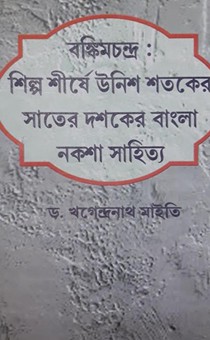 বঙ্কিমচন্দ্র :
শিল্প শীর্ষে উনিশ শতকের
সাতের দশকের বাংলা
নকশা সাহিত্য
ড. খগেন্দ্রনাথ মাইতি